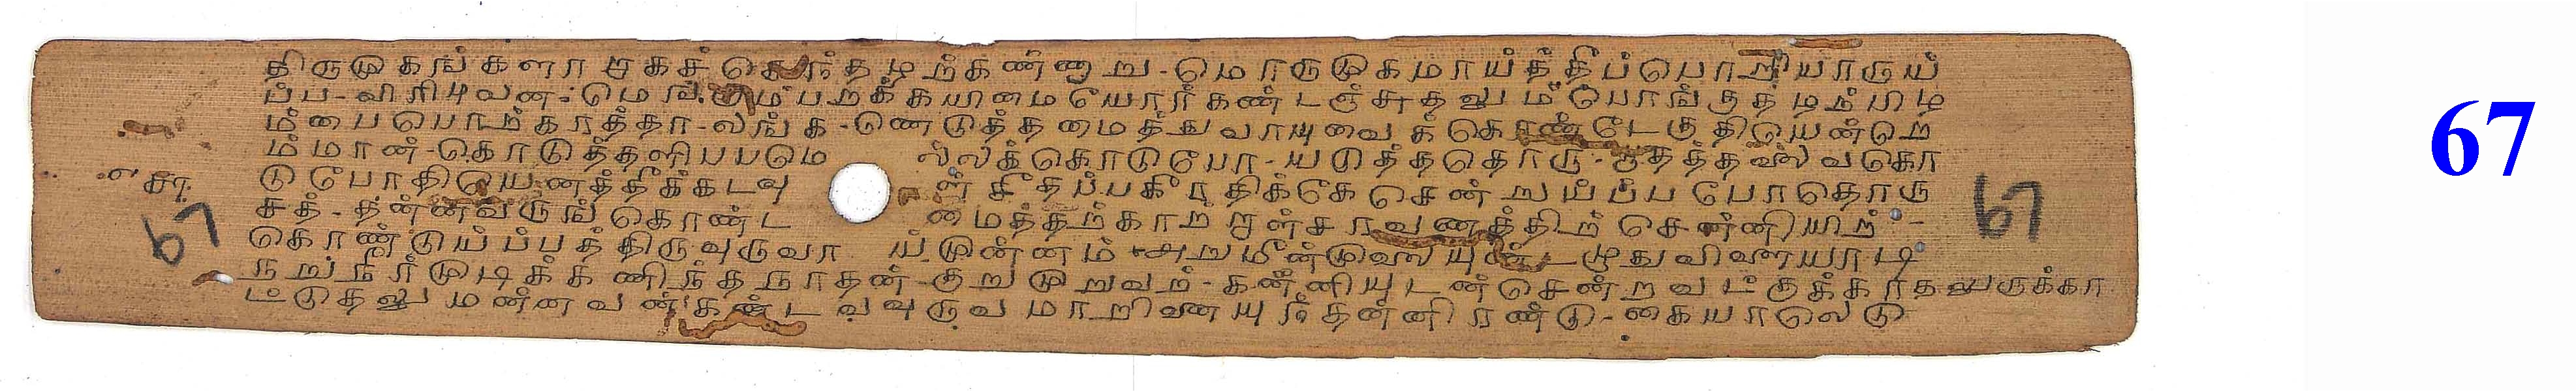 திருமுகங்களாறாகச் செந்தழற்கண்ணாறு-மொருமுகமாய்த்தீப்பொறியாறுய்
ப்ப-விரிபுவன-மெங்கும் பரக்க யிமையோர்கண்டஞ்சுதலும் பொங்குதழற்பிழ
ம்பைபொற்கரத்தா-லங்க-ணெடுத்தமைத்துவாயுவைக்கொண்டேகுதியென்றெ
ம்மான்-கொடுத்தளிப்பமெ ல்லக்கொடுபோ-யடுத்ததொரு-பூதத்தலைவகொ
டுபோதியெனத்தீக்கடவு ள் சீதப்பகீரதிக்கே சென்றுய்ப்ப போதொரு
சத்-தன்னவருங்கொண்ட மைத்தற்காற்றாள்சரவணத்திற் சென்னியிற்-
கொண்டுய்ப்பத்திருவுருவா ய்முன்னம் அறுமீன்முலையுண்டழுதுவிளையாடி
நறுநீர்முடிக்கணிந்தநாதன்-குறுமுறுவற்-கன்னியுடன்சென்றவட்குக்காதலுருக்கா
ட்டுதலுமன்னவன்கண்டவ்வுருவமாறிணையுந்தன்னிரண்டு-கையாலெடு
67
67
67